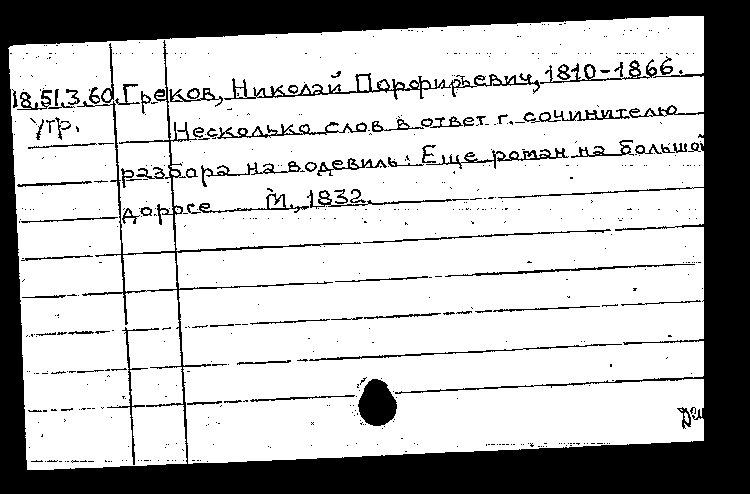 18.51.3.60. Греков, Николай Порфирьевич, 1810-1866.
утр. Несколько слов в ответ г. сочинителю
разбора на водевиль: Еще роман на большой
дороге М., 1832.